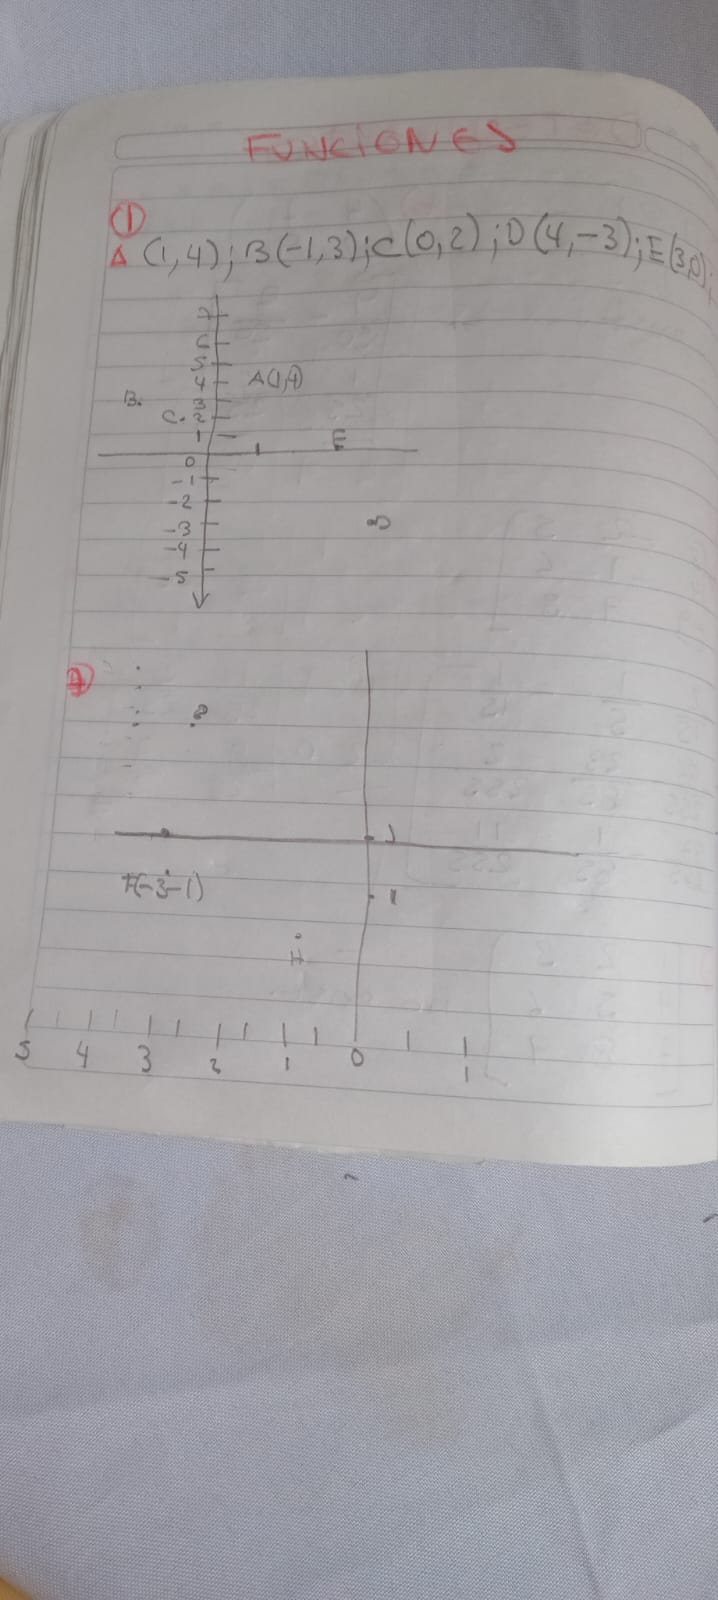 FUNCIONES
1
A (1,4); B(-1,3); C(0,2); D(4,-3); E(3,0);
7
6
5
4 A(1,4)
B. 3
C. 2
1 E
0
-1
-2
-3 D
-4
-5
B
F(-3-1)
H
5 4 3 2 1 0 1